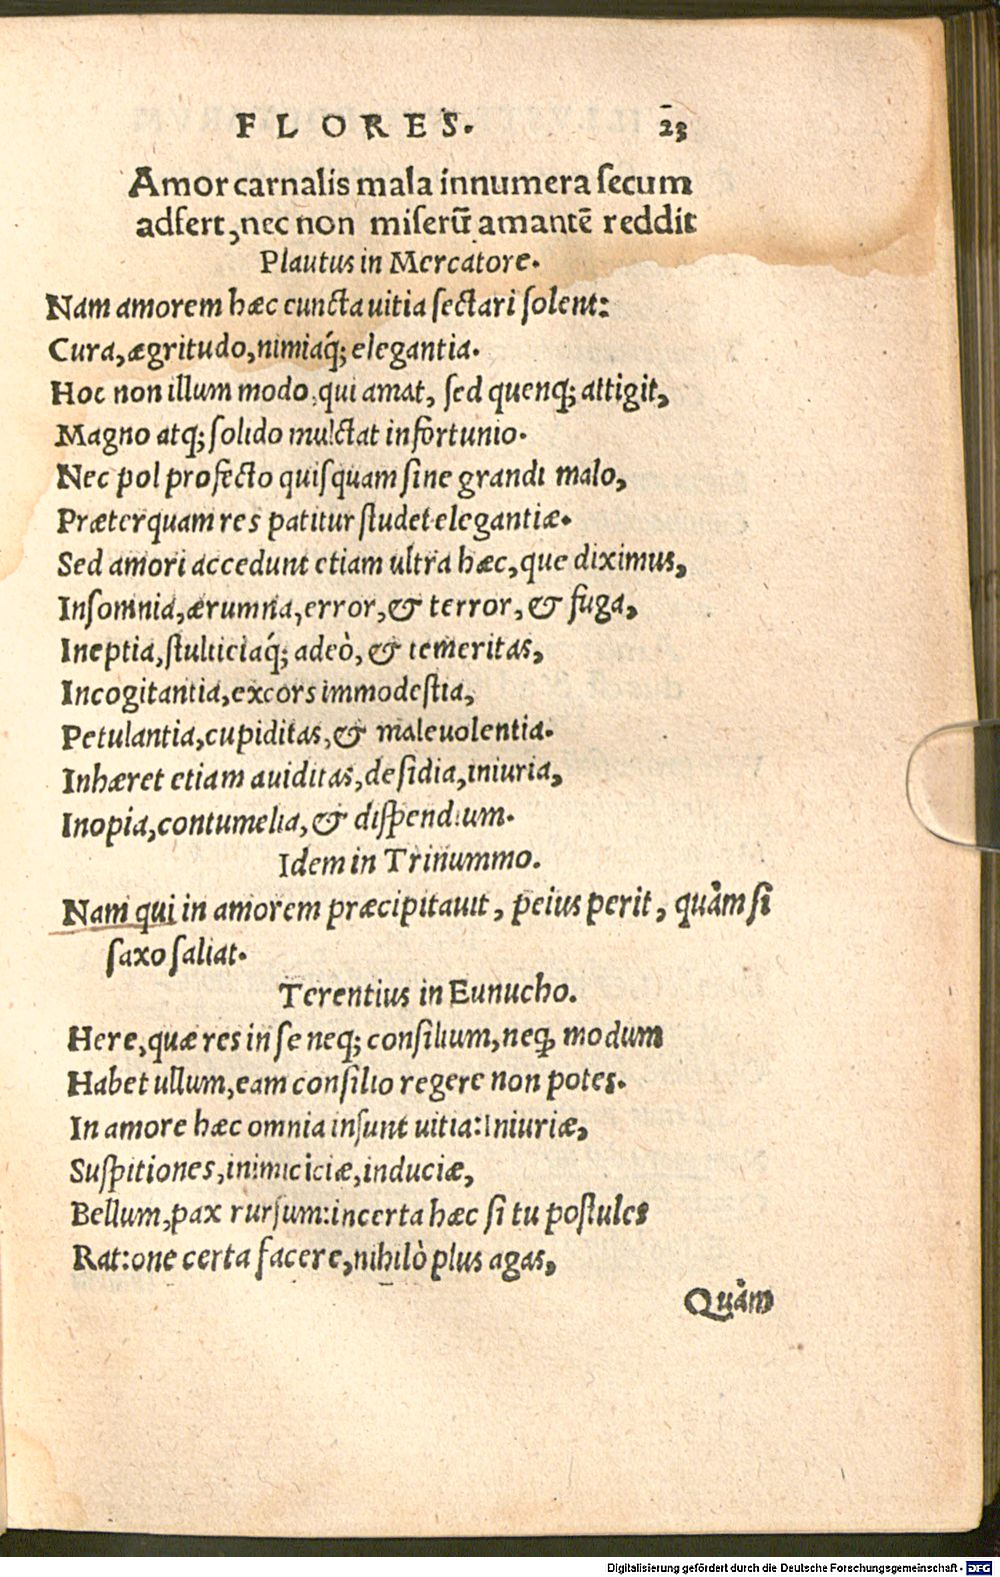 FLORES. 23
Amor carnalis mala innumera secum
adfert, nec non miserũ amantẽ reddit
Plautus in Mercatore.
Nam amorem hæc cuncta uitia sectari solent:
Cura, ægritudo, nimiaq́; elegantia.
Hoc non illum modo, qui amat, sed quenq; attigit,
Magno atq; solido mulctat infortunio.
Nec pol profecto quisquam sine grandi malo,
Præterquam res patitur studet elegantiæ.
Sed amori accedunt etiam ultra hæc, que diximus,
Insomnia, ærumna, error, & terror, & fuga,
Ineptia, stulticiaq́; adeò, & temeritas,
Incogitantia, excors immodestia,
Petulantia, cupiditas, & maleuolentia.
Inhæret etiam auiditas, desidia, iniuria,
Inopia, contumelia, & dispendium.
Idem in Trinummo.
Nam qui in amorem præcipitauit, peius perit, quàm si
saxo saliat.
Terentius in Eunucho.
Here, quæ res in se neq; consilium, neq; modum
Habet ullum, eam consilio regere non potes.
In amore hæc omnia insunt uitia: Iniuriæ,
Suspitiones, inimiciciæ, induciæ,
Bellum, pax rursum: incerta hæc si tu postules
Ratione certa facere, nihilò plus agas,
Quàm
Digitalisierung gefördert durch die Deutsche Forschungsgemeinschaft - DFG